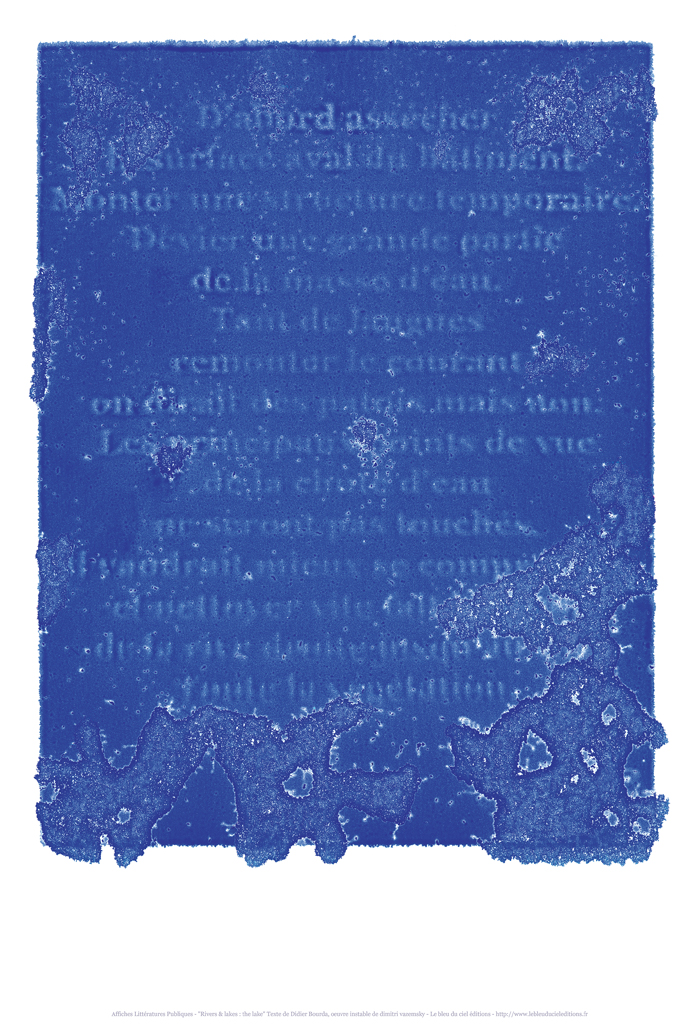 D'abord assécher
la surface aval du bâtiment.
Monter une structure temporaire.
Dévier une grande partie
de la masse d'eau.
Tant de longues
remonter le courant
on dirait des palois mais non.
Les principaux points de vue
de la chute d'eau
ne seront pas touchés.
Il vaudrait mieux se
et nettoyer vite
de la rive droite jusqu'au
Toute la végétation.
Affiches Littératures Publiques - "Rivers & lakes : the lake" Texte de Didier Bourda, oeuvre instable de dimitri vazemsky - Le bleu du ciel éditions - http://www.lebleuducieleditions.fr